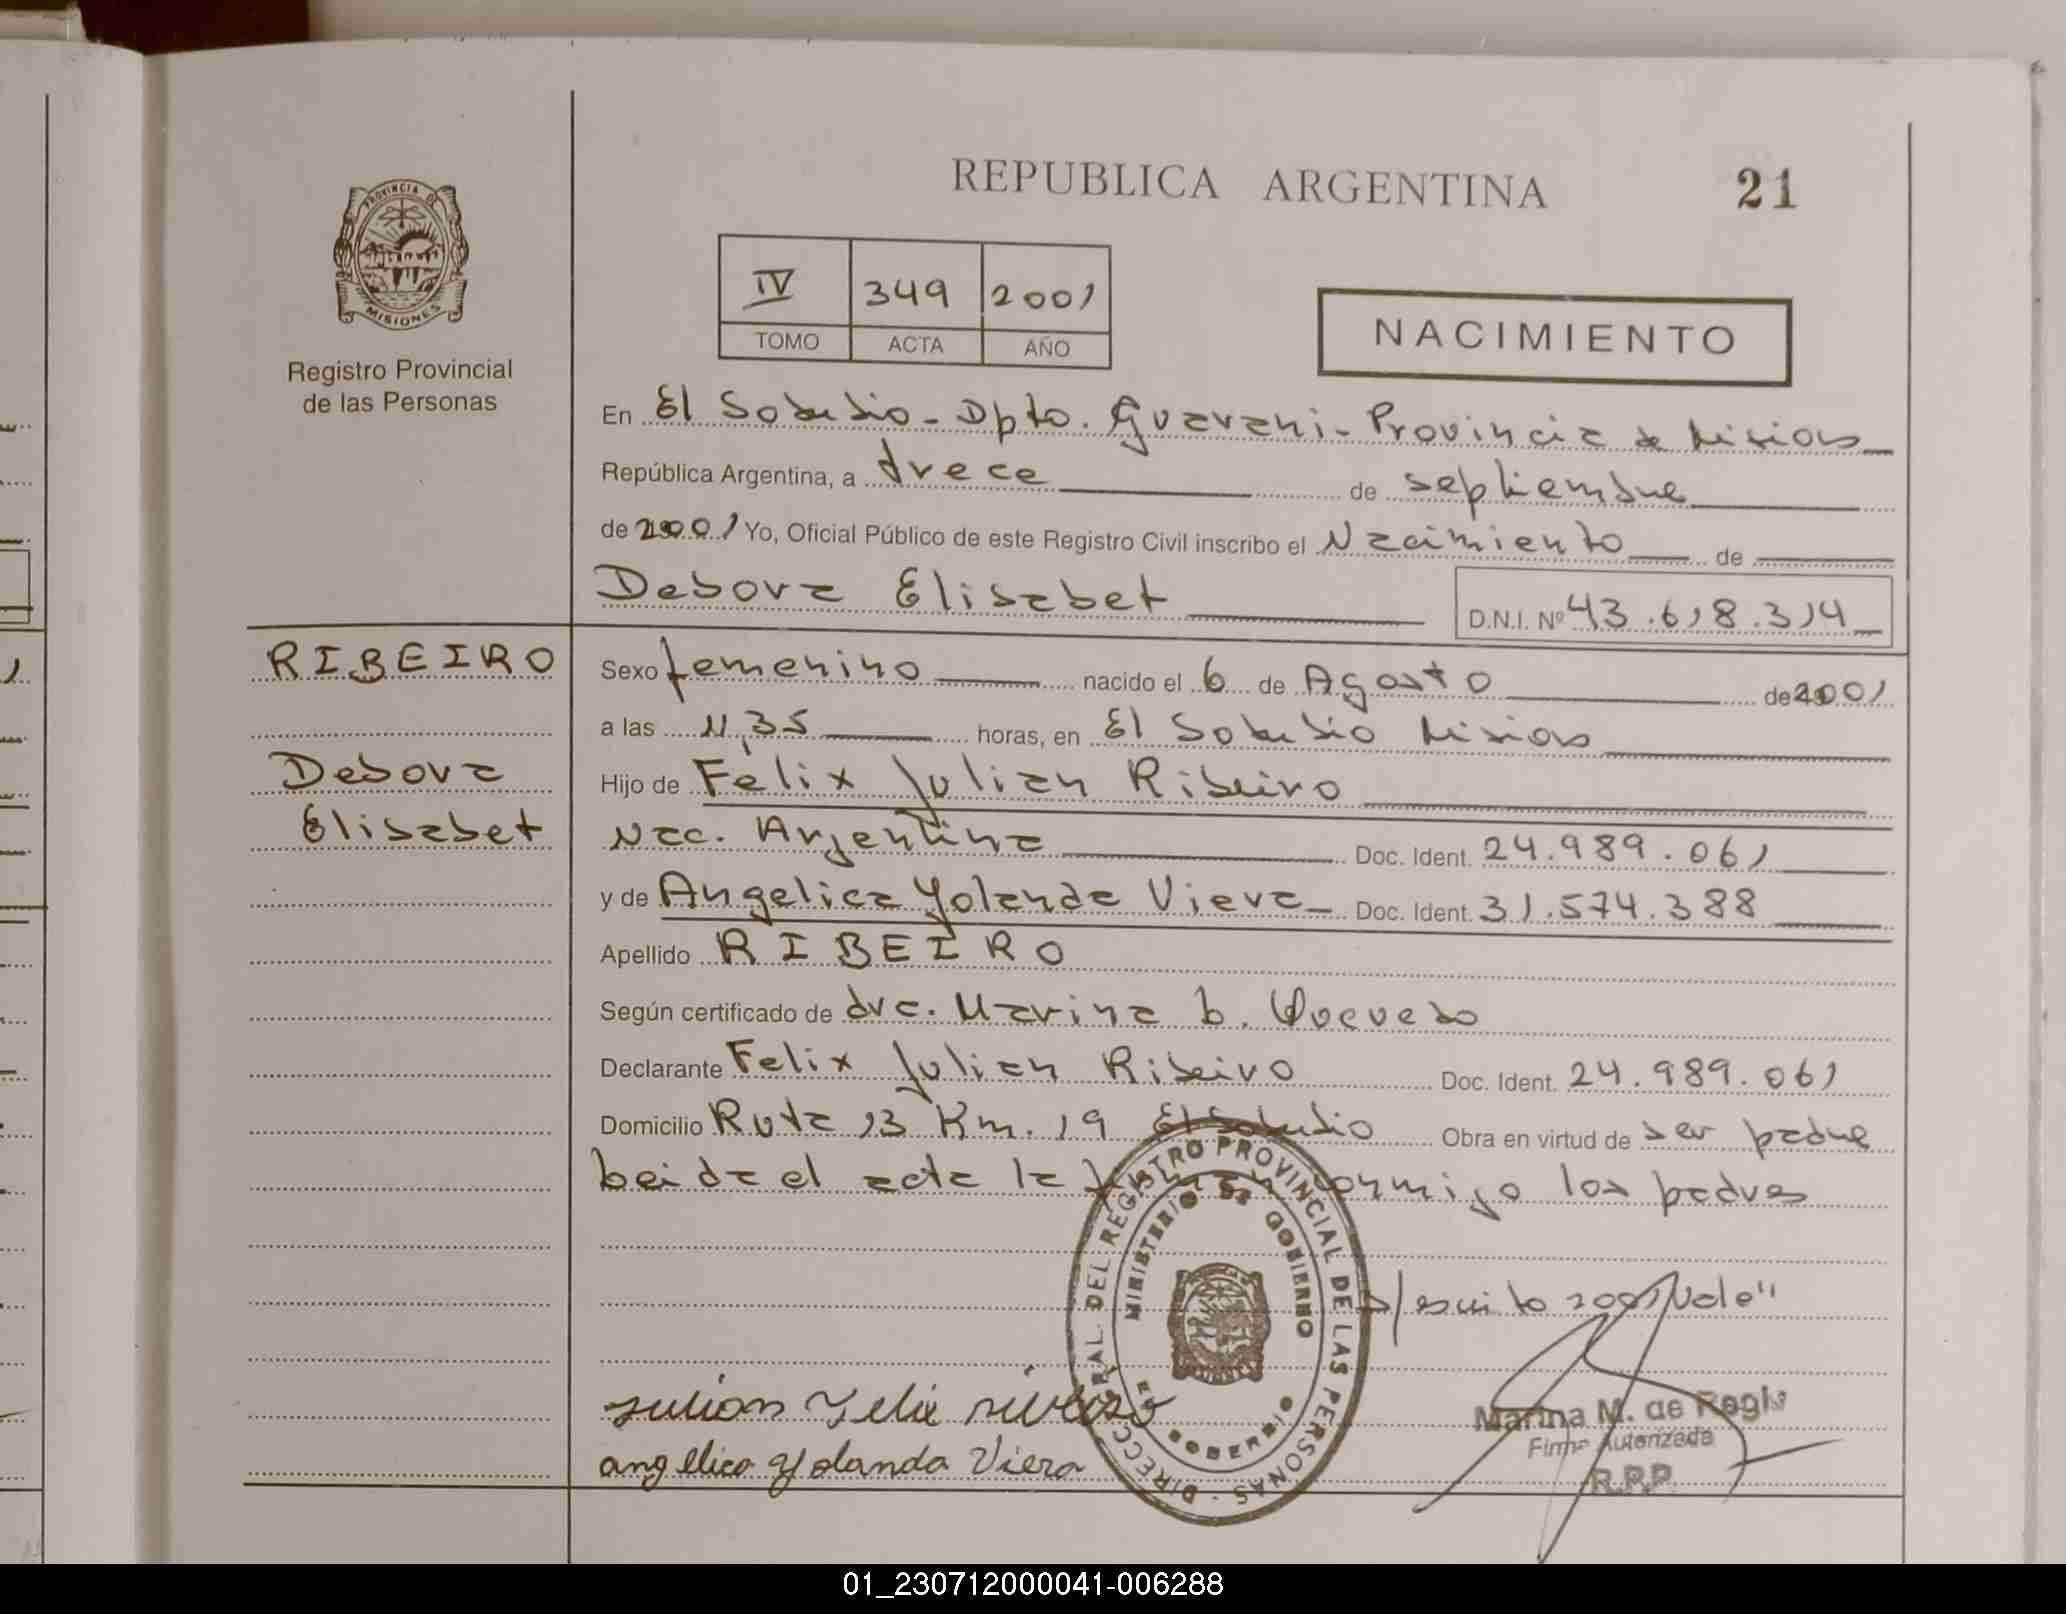 REPUBLICA ARGENTINA
21
PROVINCIA DE
MISIONES
Registro Provincial
de las Personas
IV 349 2001
TOMO ACTA AÑO
NACIMIENTO
En El Soberbio - Dpto. Guarani - Provincia de Misiones
República Argentina, a trece de septiembre
de 2001 Yo, Oficial Público de este Registro Civil inscribo el Nacimiento de
Debora Elisabet
D.N.I. Nº 43.618.314
RIBEIRO
Debora
Elisabet
Sexo femenino nacido el 6 de Agosto de 2001
a las 11,35 horas, en El Soberbio Misiones
Hijo de Felix Julian Ribeiro
Nac. Argentina Doc. Ident. 24.989.061
y de Angelica Yolanda Viera - Doc. Ident. 31.574.388
Apellido RIBEIRO
Según certificado de dra. Marina b. Quevedo
Declarante Felix Julian Ribeiro Doc. Ident. 24.989.061
Domicilio Ruta 13 Km. 19 El Soberbio Obra en virtud de ser padre
Leida el acta la firman conmigo los padres
s/escrito 2001 Vale"
DIRECC. GRAL. DEL REGISTRO PROVINCIAL DE LAS PERSONAS
MINISTERIO DE GOBIERNO
EL SOBERBIO
Julian Felix riveiro
angelica Yolanda Viera
Marina M. de Regis
Firma Autorizada
R.P.P.
01_230712000041-006288